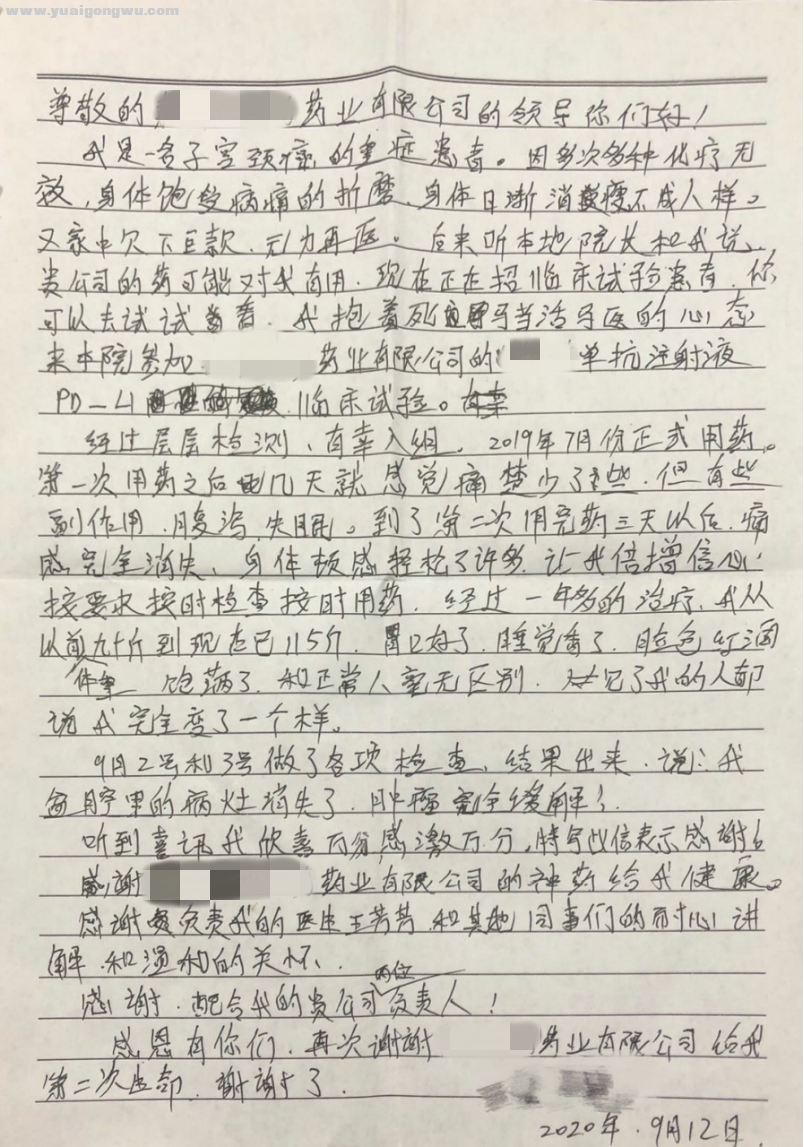 www.yuaigongwu.com
尊敬的 药业有限公司的领导你们好！
我是一名子宫颈癌的重症患者。因多次多种化疗无
效，身体饱受病痛的折磨，身体日渐消瘦不成人样。
又家中欠下巨款，无力再医。后来听本地院长和我说，
贵公司的药可能对我有用，现在正在招临床试验患者，你
可以去试试看，我抱着死马当活马医的心态
来本院参加 药业有限公司的 单抗注射液
PD-L1 临床试验。
经过层层检测，有幸入组，2019年7月份正式用药。
第一次用药之后几天就感觉痛楚少了些，但有些
副作用，腹泻，失眠。到了第二次用完药三天以后，痛
感完全消失，身体顿感轻松了许多，让我倍增信心，
按要求按时检查按时用药，经过一年多的治疗，我从
以前九十斤到现在已115斤，胃口好了，睡觉香了，脸色红润
饱满了，和正常人毫无区别，见了我的人都
说我完全变了一个样。
9月2号和3号做了各项检查，结果出来，说：我
腔里的病灶消失了，肿瘤完全缓解！
听到喜讯我欣喜万分，感激万分，特写此信表示感谢
感谢 药业有限公司的神药给我健康。
感谢负责我的医生王芳芳，和其他同事们的耐心讲
解，和温和的关怀，
感谢，配合我的贵公司两位负责人！
感恩有你们，再次谢谢 药业有限公司给我
第二次生命，谢谢了。
2020年.9月12日.